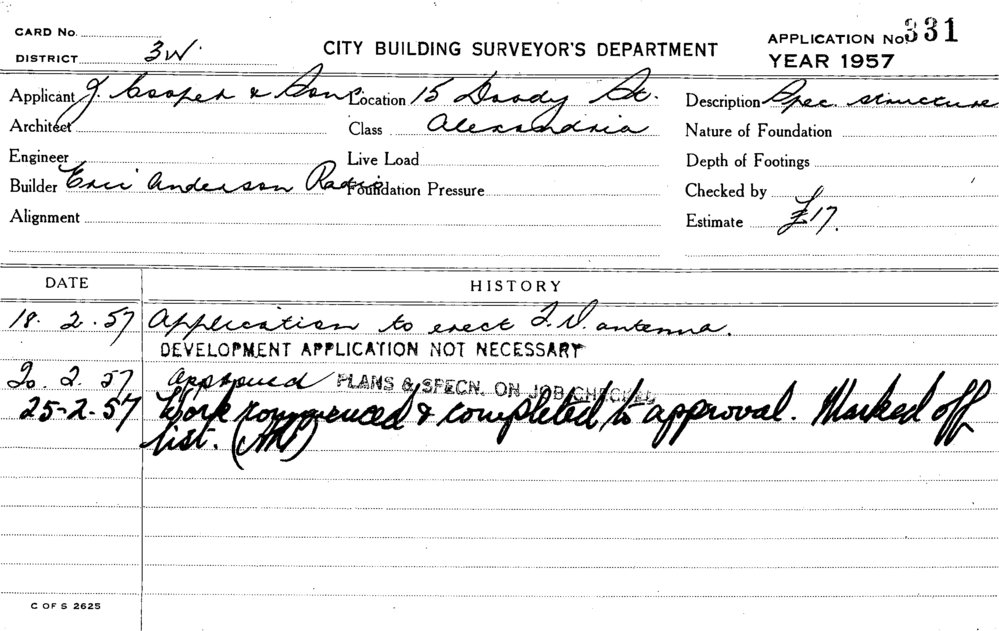 CARD No.
DISTRICT 3W.
CITY BUILDING SURVEYOR'S DEPARTMENT
APPLICATION No. 331
YEAR 1957
Applicant J. Cooper & Sons Location 15 Doody St. Description Spec. structure
Architect Class Alexandria Nature of Foundation
Engineer Live Load Depth of Footings
Builder Eric Anderson Radio Foundation Pressure Checked by
Alignment Estimate £17.
DATE HISTORY
18. 2. 57 Application to erect T.V. antenna.
DEVELOPMENT APPLICATION NOT NECESSARY
20. 2. 57 Approved PLANS & SPECN. ON JOB CHECKED
25-2-57 Work commenced & completed to approval. Marked off
list.
C OF S 2625